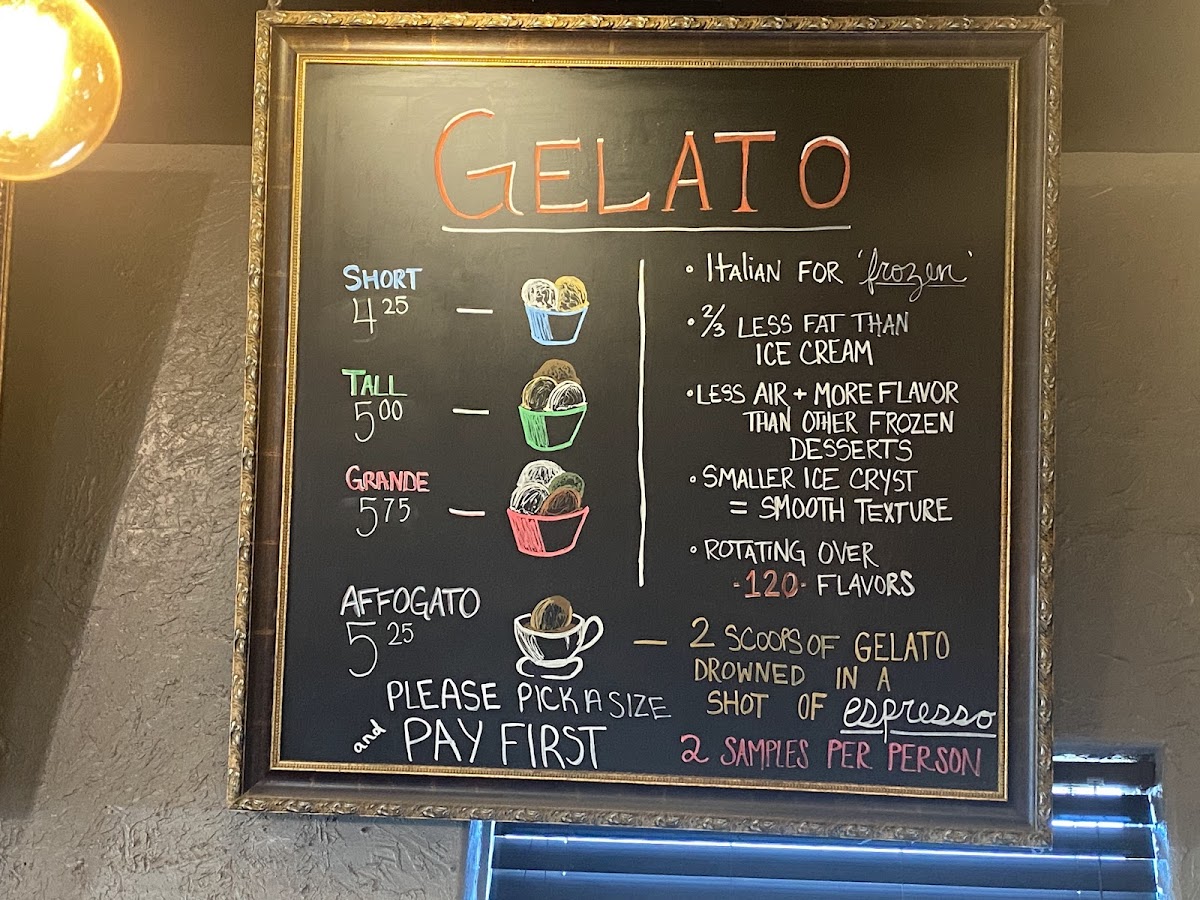 GELATO
SHORT
4 25
TALL
5 00
GRANDE
5 75
• Italian FOR 'frozen'
• 2/3 LESS FAT THAN
ICE CREAM
• LESS AIR + MORE FLAVOR
THAN OTHER FROZEN
DESSERTS
• SMALLER ICE CRYST
= SMOOTH TEXTURE
• ROTATING OVER
-120- FLAVORS
AFFOGATO
5 25
2 SCOOPS OF GELATO
DROWNED IN A
SHOT OF espresso
PLEASE PICK A SIZE
and PAY FIRST
2 SAMPLES PER PERSON